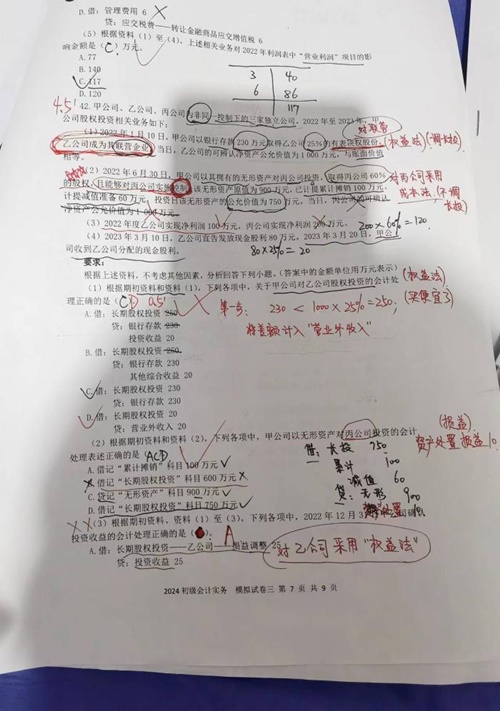 D.借：管理费用 6
贷：应交税费——转让金融商品应交增值税 6
(5) 根据资料（1）至（4），上述相关业务对 2022 年利润表中“营业利润”项目的影
响金额是（C）万元。
A.77
B.140
C.117
D.120
3 40
6 86
117
4.5'
42. 甲公司、乙公司、丙公司为非同一控制下的三家独立公司。2022 年至 2023 年，甲
公司股权投资相关业务如下：
(1) 2022 年 1 月 10 日，甲公司以银行存款 230 万元取得乙公司 25%的有表决权股份，
乙公司成为其联营企业，当日，乙公司的可辨认净资产公允价值为 1 000 万元，与账面价值
相等。
(权益法)
(2) 2022 年 6 月 30 日，甲公司以其拥有的无形资产对丙公司投资，取得丙公司 60%
的股权，且能够对丙公司实施控制，该无形资产原值为 900 万元，已计提累计摊销 100 万元，
计提减值准备 60 万元，投资日该无形资产的公允价值为 750 万元，当日，丙公司的可辨认
净资产公允价值为 1 000 万元。
对丙公司采用
成本法
(3) 2022 年度乙公司实现净利润 100 万元，丙公司实现净利润 200 万元。
200×60%=120
(4) 2023 年 3 月 10 日，乙公司宣告发放现金股利 80 万元。2023 年 3 月 20 日，甲公
司收到乙公司分配的现金股利。
80×25%=20
要求：
根据上述资料，不考虑其他因素，分析回答下列小题。（答案中的金额单位用万元表示）
(1) 根据期初资料和资料（1），下列各项中，关于甲公司对乙公司股权投资的会计处
理正确的是（CD）
0.5'
(权益法)
(买便宜了)
第一步：230 < 1000×25%=250,
将差额计入“营业外收入”
A.借：长期股权投资 250
贷：银行存款 230
投资收益 20
B.借：长期股权投资 250
贷：银行存款 230
其他综合收益 20
C.借：长期股权投资 230
贷：银行存款 230
D.借：长期股权投资 20
贷：营业外收入 20
(2) 根据期初资料和资料（2），下列各项中，甲公司以无形资产对丙公司投资的会计
处理表述正确的是（ACD）
A.借记“累计摊销”科目 100 万元
B.借记“长期股权投资”科目 600 万元
C.贷记“无形资产”科目 900 万元
D.借记“长期股权投资”科目 750 万元
借：长投 750
累计 100
减值 60
贷：无形 900
(损益)
资产处置损益 10
(3) 根据期初资料、资料（1）至（3），下列各项中，2022 年 12 月 3
投资收益的会计处理正确的是
A
A.借：长期股权投资——乙公司——损益调整 25
贷：投资收益 25
对乙公司采用“权益法”
2024 初级会计实务 模拟试卷三 第 7 页 共 9 页